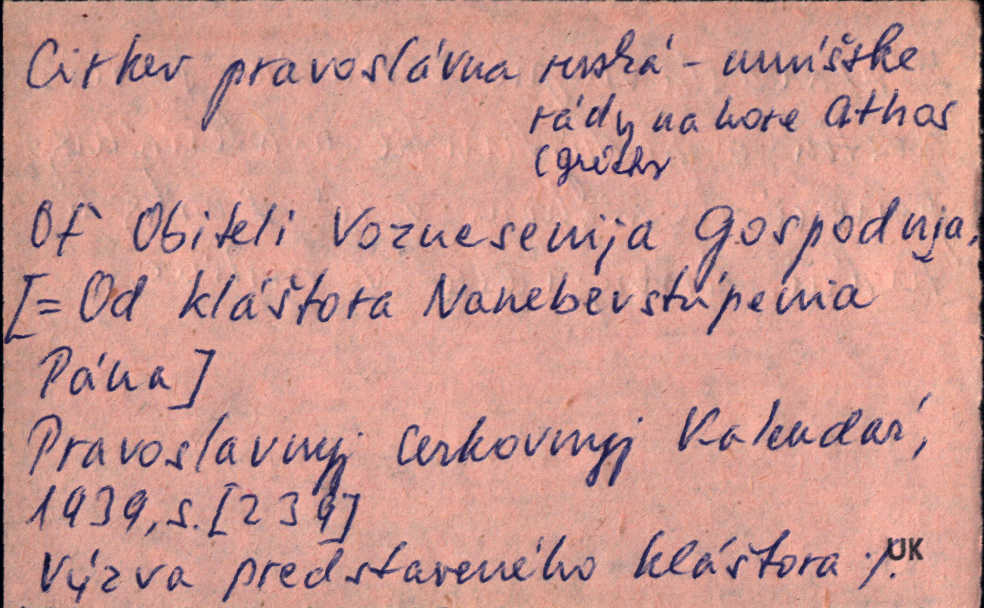 Cirkev pravoslávna ruská - mníšske
rády na hore Athos
(grécky
Ot Obiteli Voznesenija Gospodnja.
[= Od kláštora Nanebevstúpenia
Pána]
Pravoslavnyj cerkovnyj Kalendar',
1939, s. [239]
Výzva predstaveného kláštora ./.
UK